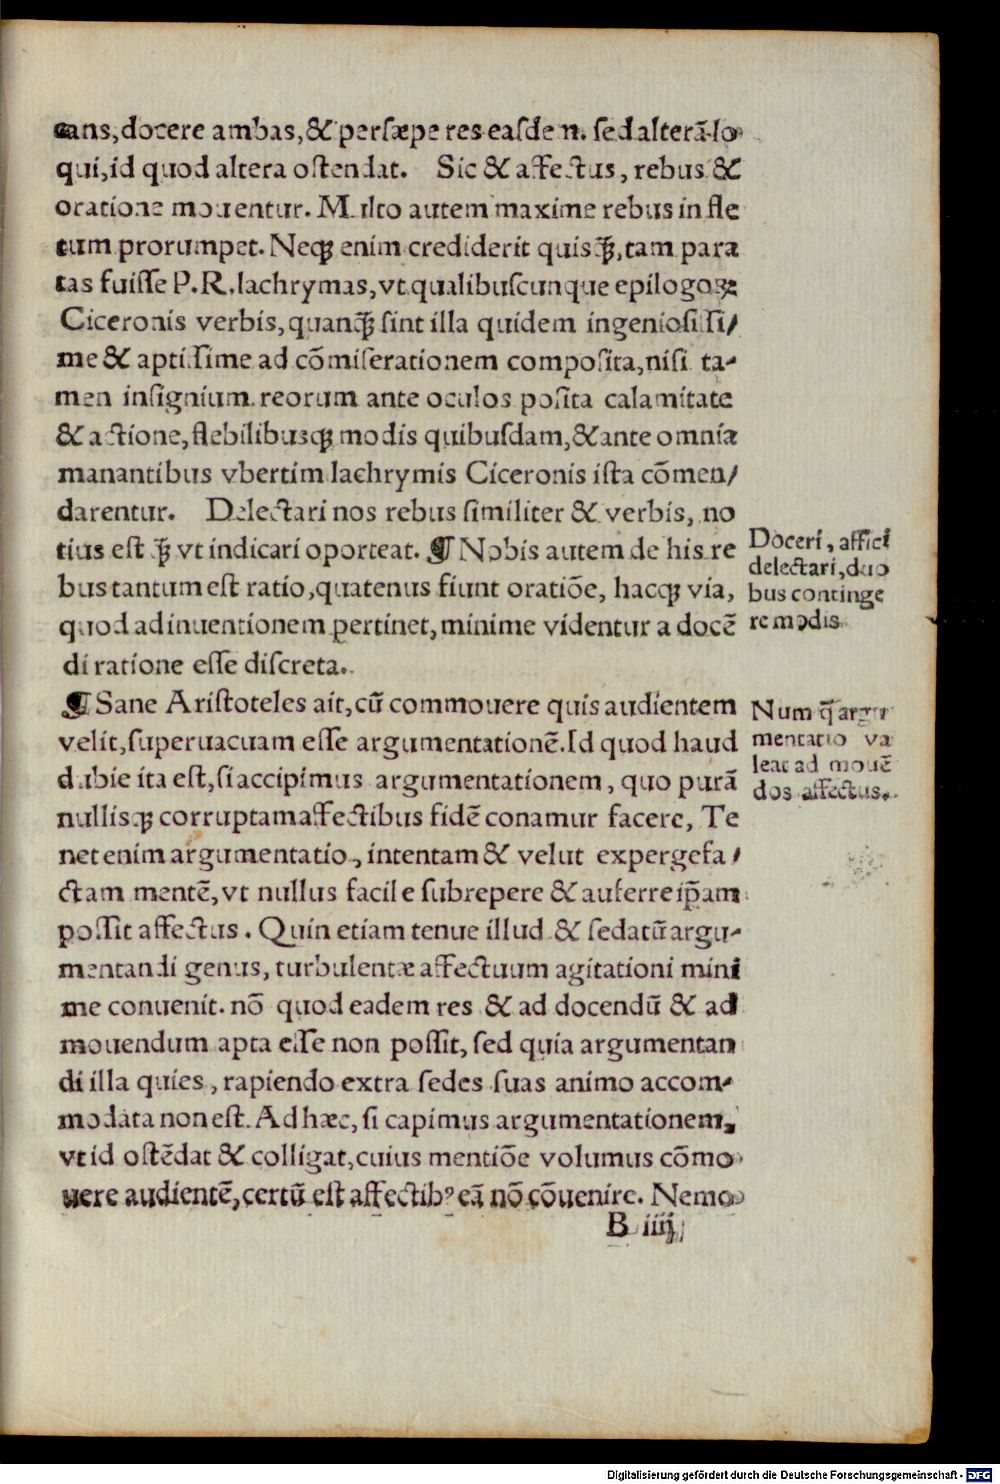 cans, docere ambas, & persæpe res easdem. sed alterā lo
qui, id quod altera ostendat. Sic & affectus, rebus &
oratione mouentur. Multo autem maxime rebus in fle
tum prorumpet. Neqꝫ enim crediderit quisꝙ̃, tam para
tas fuisse P. R. lachrymas, vt qualibuscunque epilogoꝝ
Ciceronis verbis, quanꝙ̃ sint illa quidem ingeniosissi/
me & aptissime ad cōmiserationem composita, nisi ta-
men insignium reorum ante oculos posita calamitate
& actione, flebilibusqꝫ modis quibusdam, & ante omnia
manantibus vbertim lachrymis Ciceronis ista cōmen/
darentur. Delectari nos rebus similiter & verbis, no
tius est ꝙ̃ vt indicari oporteat. ¶ Nobis autem de his re
bus tantum est ratio, quatenus fiunt oratiōe, hacqꝫ via,
quod ad inuentionem ꝑtinet, minime videntur a docē
di ratione esse discreta.
Doceri, affici
delectari, duo
bus continge
re modis.
¶ Sane Aristoteles ait, cū commouere quis audientem
velit, superuacuam esse argumentationē. Id quod haud
dubie ita est, si accipimus argumentationem, quo purā
nullisqꝫ corruptam affectibus fidē conamur facere, Te
net enim argumentatio, intentam & velut expergefa/
ctam mentē, vt nullus facile subrepere & auferre ip̄am
possit affectus. Quin etiam tenue illud & sedatū argu-
mentandi genus, turbulentæ affectuum agitationi mini
me conuenit. nō quod eadem res & ad docendū & ad
mouendum apta esse non possit, sed quia argumentan
di illa quies, rapiendo extra sedes suas animo accom-
modata non est. Ad hæc, si capimus argumentationem,
vt id ostēdat & colligat, cuius mentiōe volumus cōmo
uere audientē, certū est affectibꝰ eā nō cōuenire. Nemo
Num q̄ argu
mentatio va
leat ad mouē
dos affectus.
B iiij
Digitalisierung gefördert durch die Deutsche Forschungsgemeinschaft - DFG